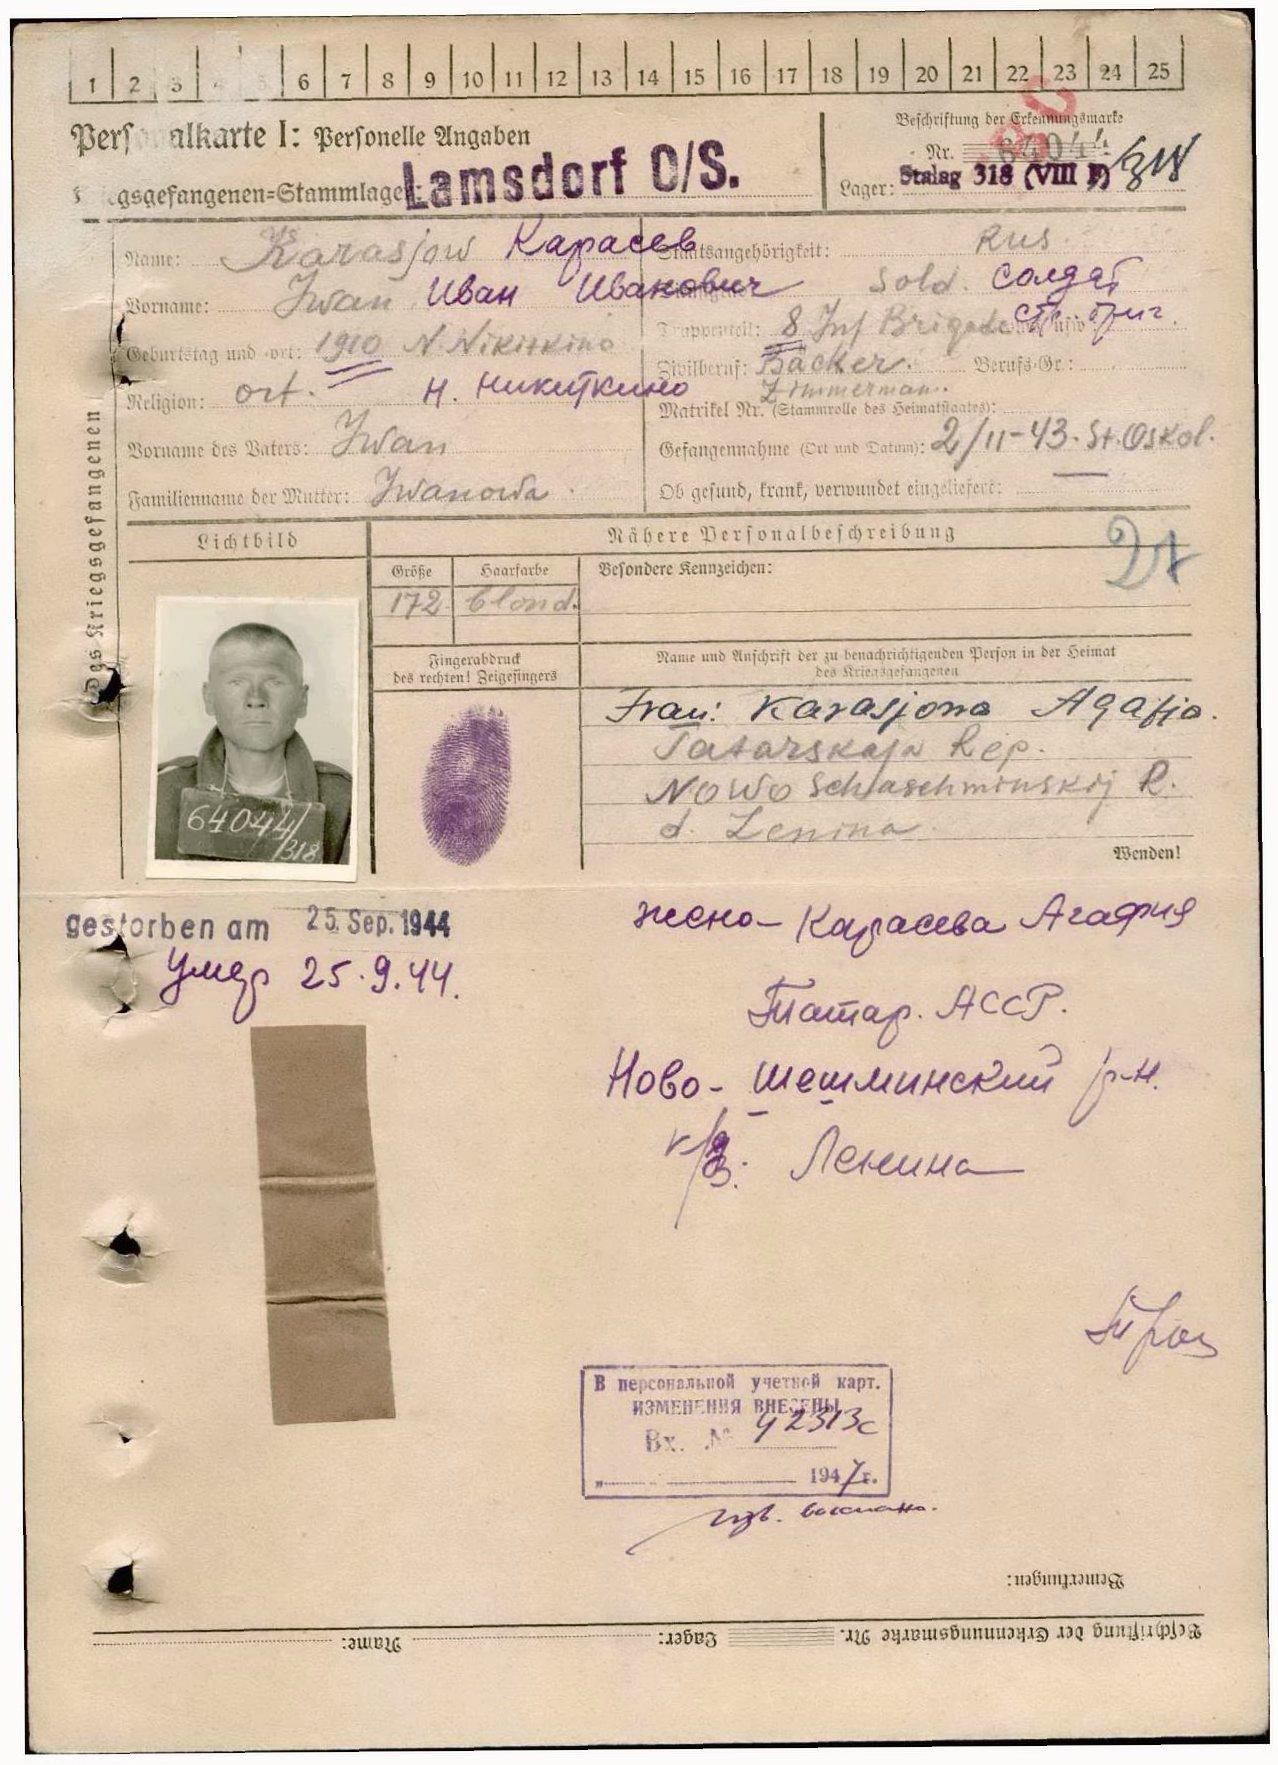 1 2 3 4 5 6 7 8 9 10 11 12 13 14 15 16 17 18 19 20 21 22 23 24 25
Personalkarte I: Personelle Angaben
Kriegsgefangenen=Stammlager: Lamsdorf O/S.
Beschriftung der Erkennungsmarke
Nr. 64044
Lager: Stalag 318 (VIII F) /318
Des Kriegsgefangenen
Name: Karasjow Карасев
Vorname: Iwan Иван Иванович
Geburtstag und -ort: 1910 N. Nikitkino
Religion: ort. Н. Никиткино
Vorname des Vaters: Iwan
Familienname der Mutter: Iwanowa
Staatsangehörigkeit: RUS
Sold. солдат
Truppenteil: 8 Inf Brigade usw. стр. бриг.
Zivilberuf: Bäcker. Berufs-Gr.:
Zimmerman.
Matrikel Nr. (Stammrolle des Heimatstaates):
Gefangennahme (Ort und Datum): 2/II-43. St. Oskol.
Ob gesund, krank, verwundet eingeliefert: —
Lichtbild
Nähere Personalbeschreibung
Größe
Haarfarbe
Besondere Kennzeichen:
172 blond.
Fingerabdruck
des rechten! Zeigefingers
Name und Anschrift der zu benachrichtigenden Person in der Heimat
des Kriegsgefangenen
Frau: Karasjowa Agafia.
Tatarskaja Rep.
Nowo Schaschminskij R.
d. Lenina.
64044/
318
Wenden!
gestorben am 25. Sep. 1944
Умер 25.9.44.
жена – Карасева Агафия
Татар. АССР.
Ново-Шешминский р-н.
к/з. Ленина
В персональной учетной карт.
ИЗМЕНЕНИЯ ВНЕСЕНЫ
Вх. № 42313с
„ 1947 г.
Bemerkungen:
Beschriftung der Erkennungsmarke Nr. Lager: Name: